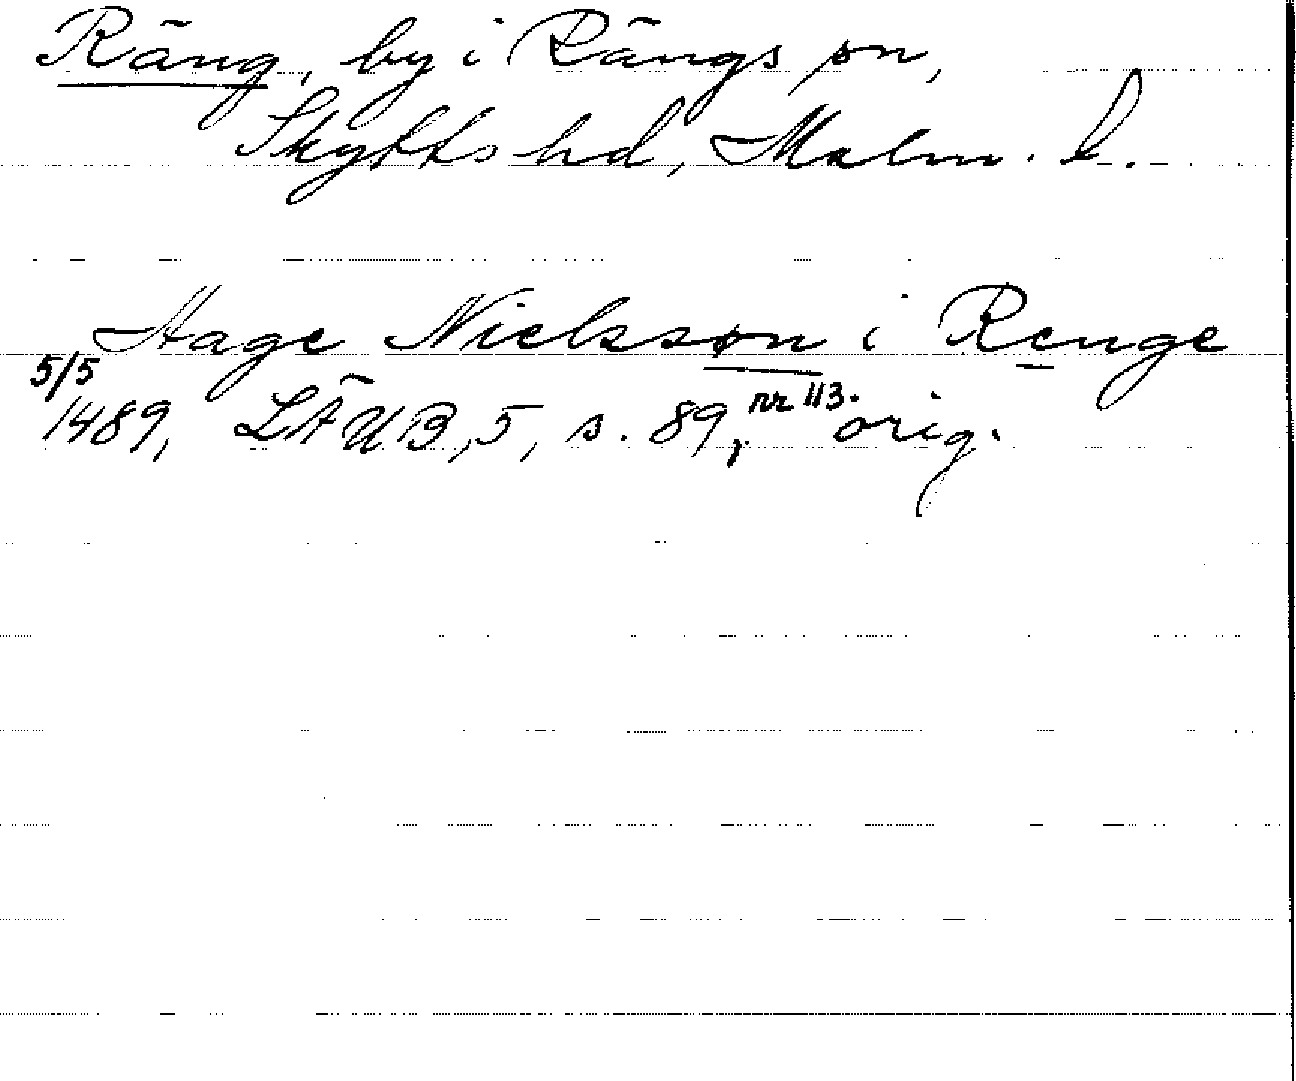 Räng, by i Rängs sn,
Skytts hd, Malm. l.
Hage Nielssøn i Renge
5/5
1489, LÄUB, 5, s. 89, nr 113. orig.